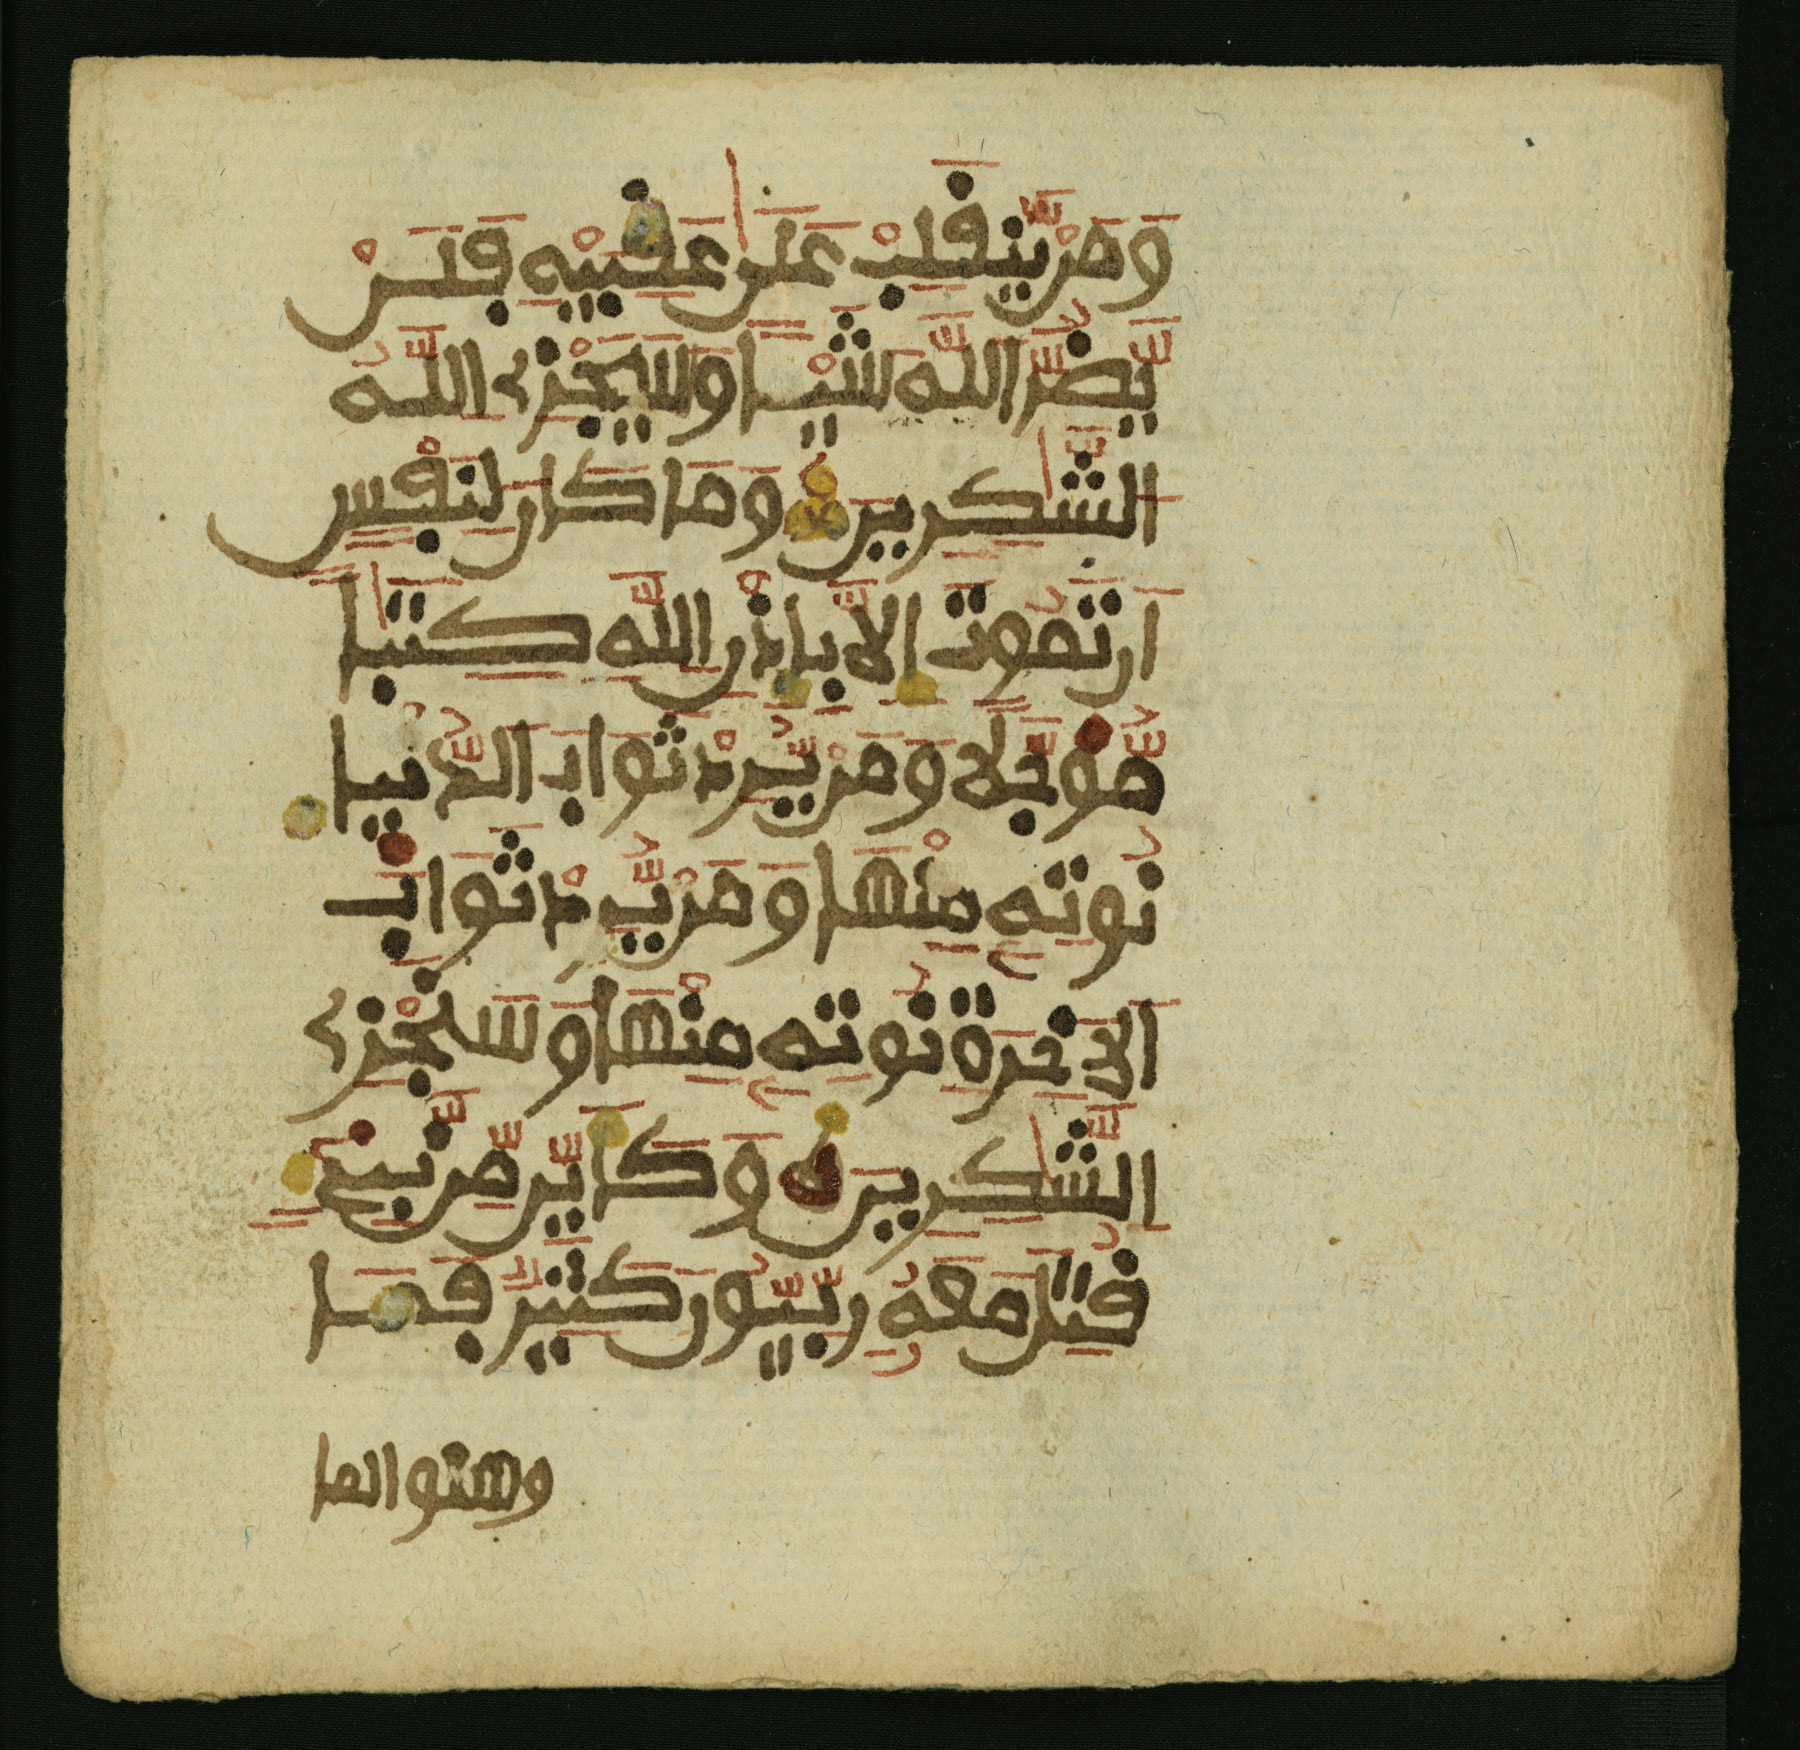 وَمَنْ يَّنقَلِبْ عَلَىٰ عَقِبَيْهِ فَلَنْ
يَّضُرَّ اللَّهَ شَيْـًٔا وَسَيَجْزِے اللَّهُ
الشَّٰكِرِينَ وَمَا كَانَ لِنَفْسٍ
اَن تَمُوتَ إِلَّا بِإِذْنِ اللَّهِ كِتَٰبًا
مُّؤَجَّلًا وَمَنْ يُّرِدْ ثَوَابَ الدُّنْيَا
نُوتِهِۦ مِنْهَا وَمَنْ يُّرِدْ ثَوَابَ
الَاخِرَةِ نُوتِهِۦ مِنْهَا وَسَنَجْزِے
الشَّٰكِرِينَ وَكَأَيِّن مِّن نَّبِےٓءٍ
قُتِلَ مَعَهُۥ رِبِّيُّونَ كَثِيرٌ فَمَا
وهنوا لما